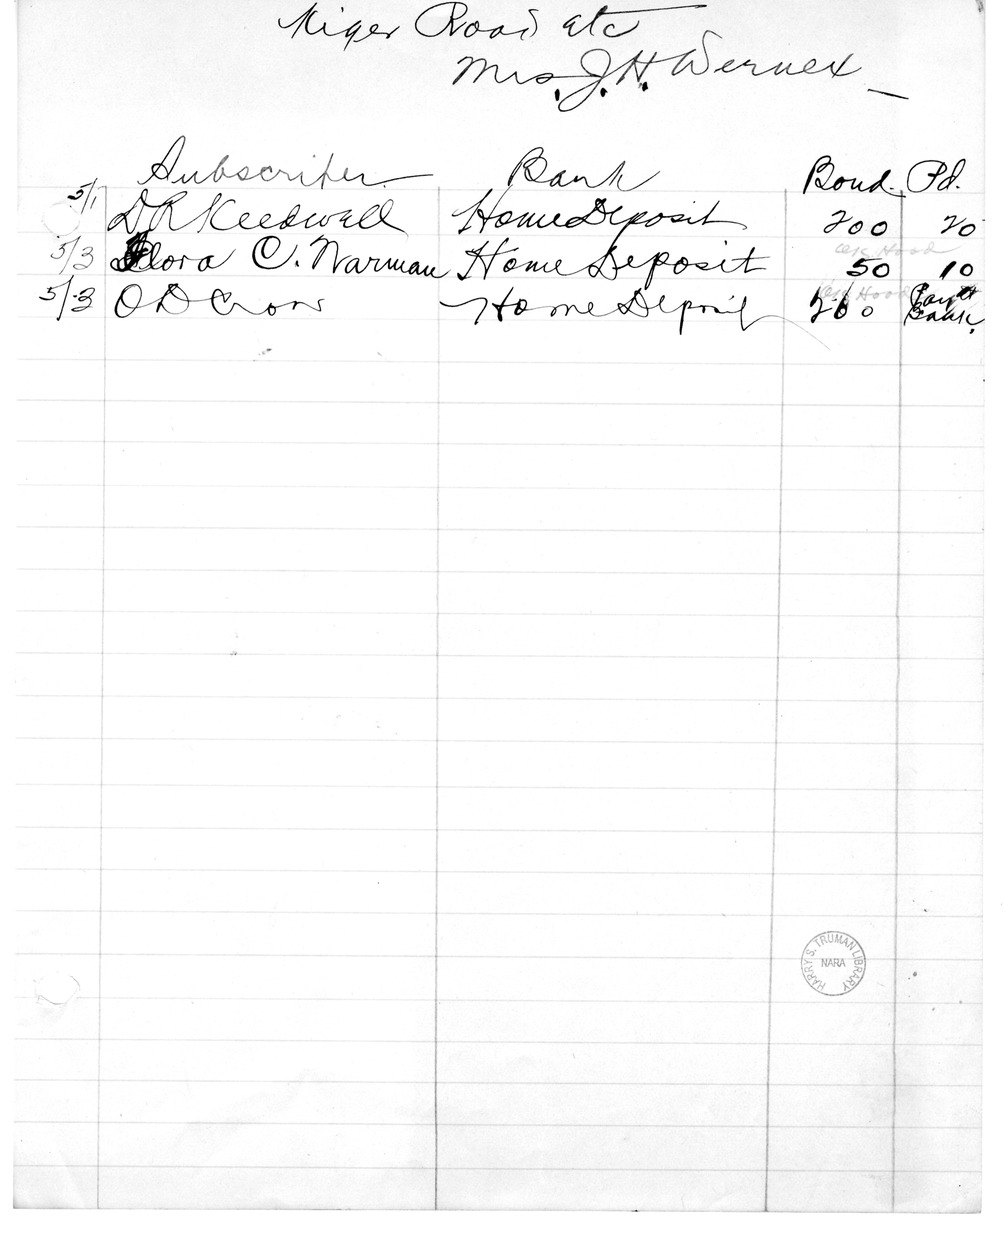 Niger Road etc
Mrs. J. H. Werner
Subscriber Bank Bond. Pd.
5/1 D R Keedwell Home Deposit 200 20
5/3 Flora C. Warman Home Deposit 50 10
5/3 O D Crow Home Deposit 200 Pay at
Bank.
HARRY S. TRUMAN LIBRARY
NARA